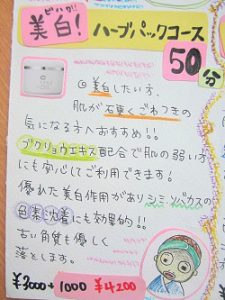 ビハク!!
美白! ハーブパックコース
50分
◎美白したい方、
肌が硬くごわつきの
気になる方へおすすめ!!
ブクリョウエキス配合で肌の弱い方
にも安心してご利用できます!
優れた美白作用があり シミ ソバカス
色素沈着にも効果的!!
古い角質も優しく
落とします。
¥3000+1000 ¥4200